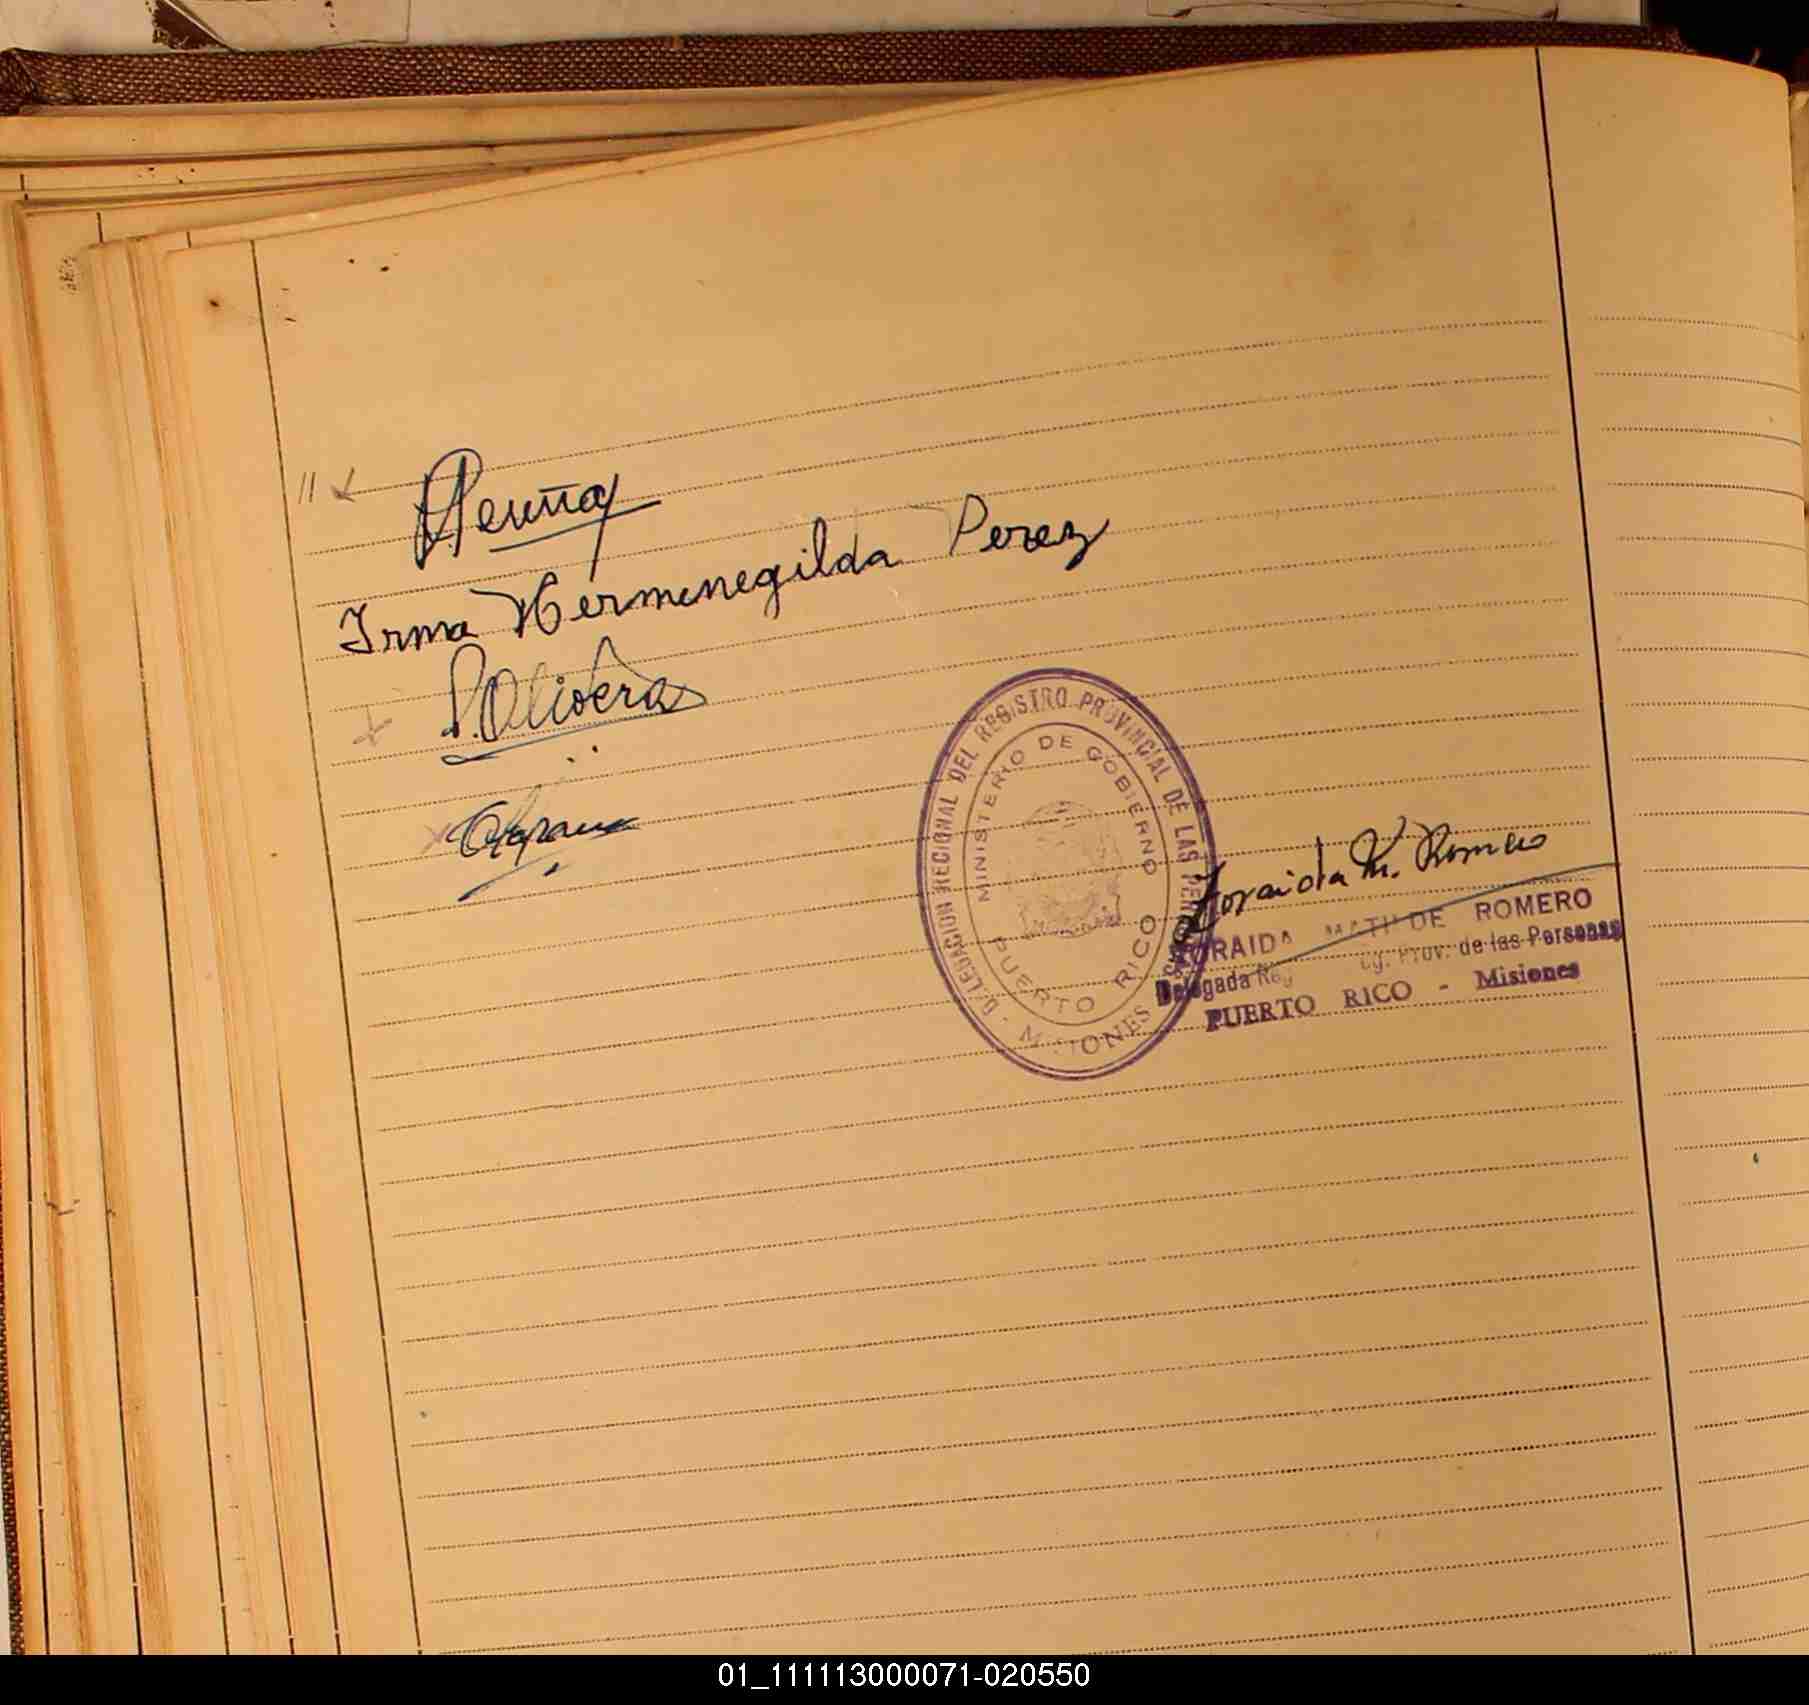 Irma Hermenegilda Perez
P. Olivera
DELEGACION REGIONAL DEL REGISTRO PROVINCIAL DE LAS PERSONAS
MINISTERIO DE GOBIERNO
PUERTO RICO
- MISIONES
Zoraida M. Romero
ZORAIDA MATILDE ROMERO
Delegada Reg. Prov. de las Personas
PUERTO RICO - Misiones
01_111113000071-020550